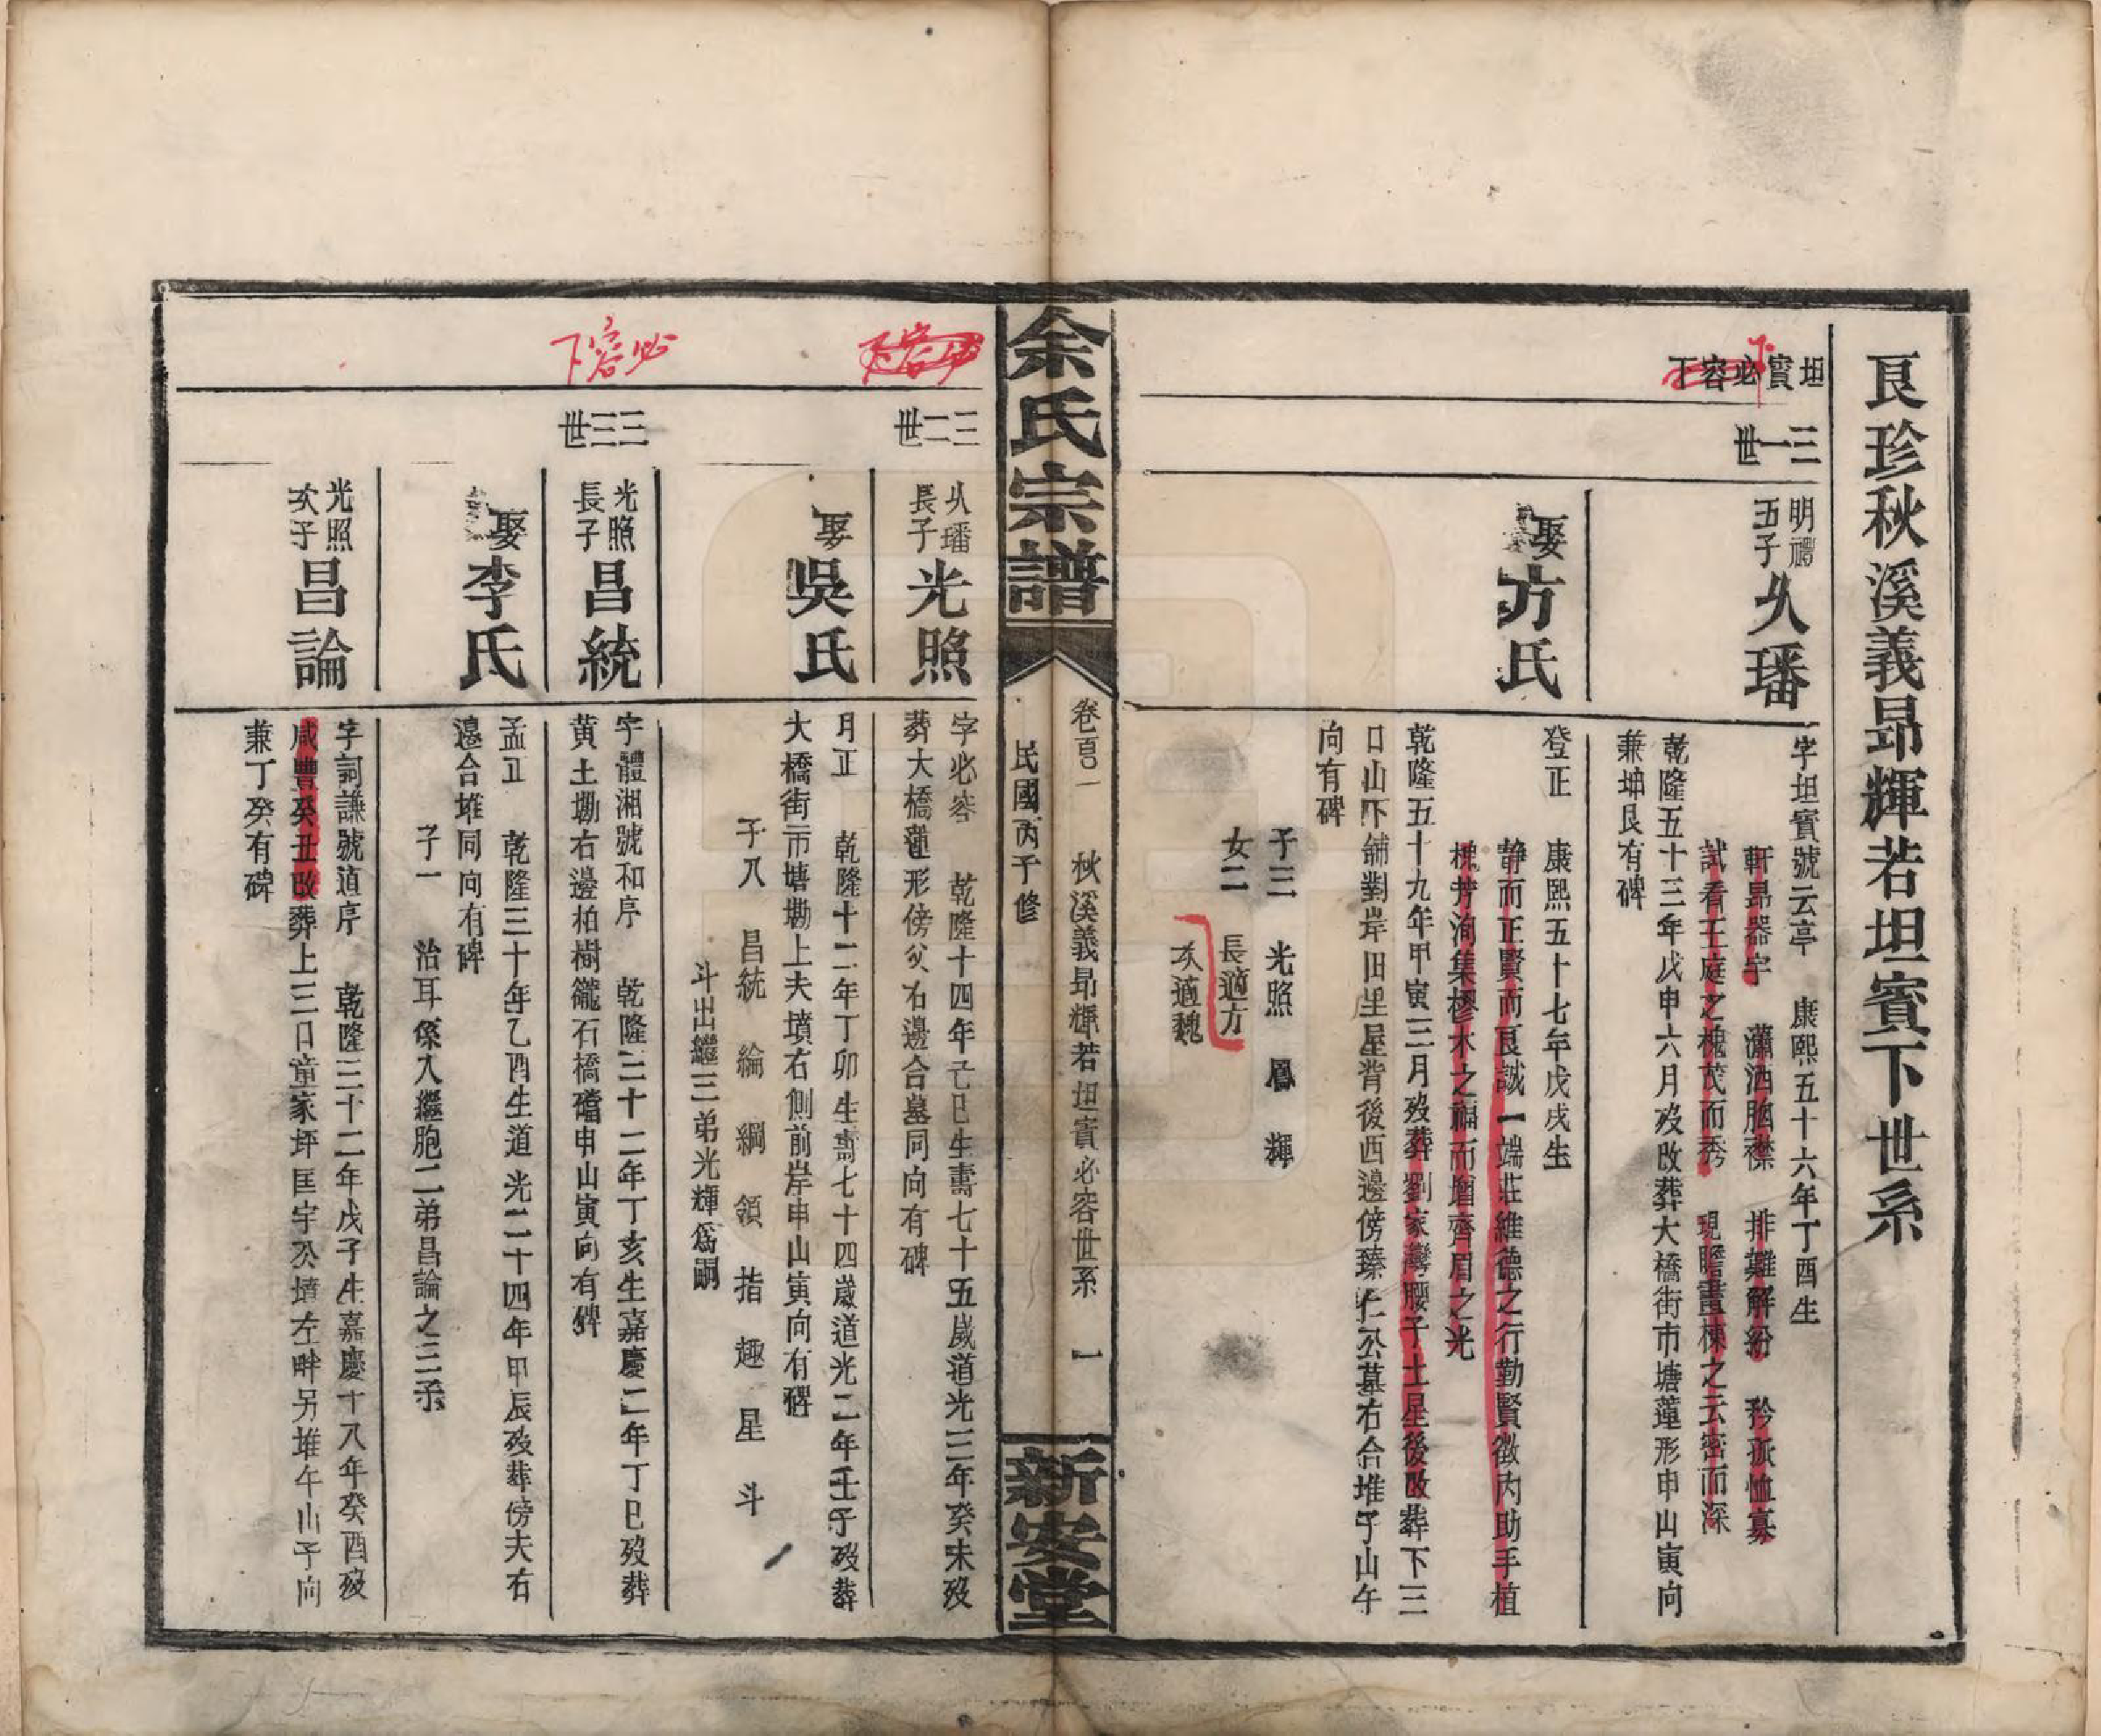 良珍秋溪義昻輝若坦賓下世系
坦賓必容下
三一世
明禮
五子
久璠
字坦賓號云亭　康熙五十六年丁酉生
軒昻器宇　瀟洒胸襟　排難解紛　矜孤恤寡
試看王庭之槐茂而秀　現瞻畫棟之云密而深
乾隆五十三年戊申六月歿改葬大橋街市塘蓮形申山寅向
兼坤艮有碑
娶方氏
登正　康熙五十七年戊戌生
静而正賢而良誠一端莊維德之行勤賢徵內助手植
槐芳洵集樛木之福而增齊眉之光
乾隆五十九年甲寅三月歿葬劉家灣腰子土星後改葬下三
口山下舖對岸田里屋背後西邊傍臻仁公墓右合堆子山午
向有碑
子三　光照　鳳　輝
女二
長適方
次適魏
余氏宗譜
卷百一　秋溪義昻輝若坦賓必容世系　一
民國丙子修
新安堂
三二世
久璠
長子
光照
字必容　乾隆十四年己巳生壽七十五歲道光三年癸未歿
葬大橋蓮形傍父右邊合墓同向有碑
娶吳氏
月正　乾隆十二年丁卯生壽七十四歲道光二年壬子歿葬
大橋街市塘塝上夫墳右側前岸申山寅向有碑
子八　昌統　綸　綱　領　指　趣　星　斗
斗出繼三弟光輝爲嗣
必容下
三三世
光照
長子
昌統
字體湘號和序　乾隆三十二年丁亥生嘉慶二年丁巳歿葬
黄土塝右邊柏樹籠石橋礑申山寅向有碑
娶李氏
孟正　乾隆三十年乙酉生道光二十四年甲辰歿葬傍夫右
邊合堆同向有碑
子一　治耳係入繼胞二弟昌論之三子
光照
次子
昌論
字詞謙號道序　乾隆三十二年戊子生嘉慶十八年癸酉歿
咸豐癸丑改葬上三口童家坪匡宇公墳左畔另堆午山子向
兼丁癸有碑